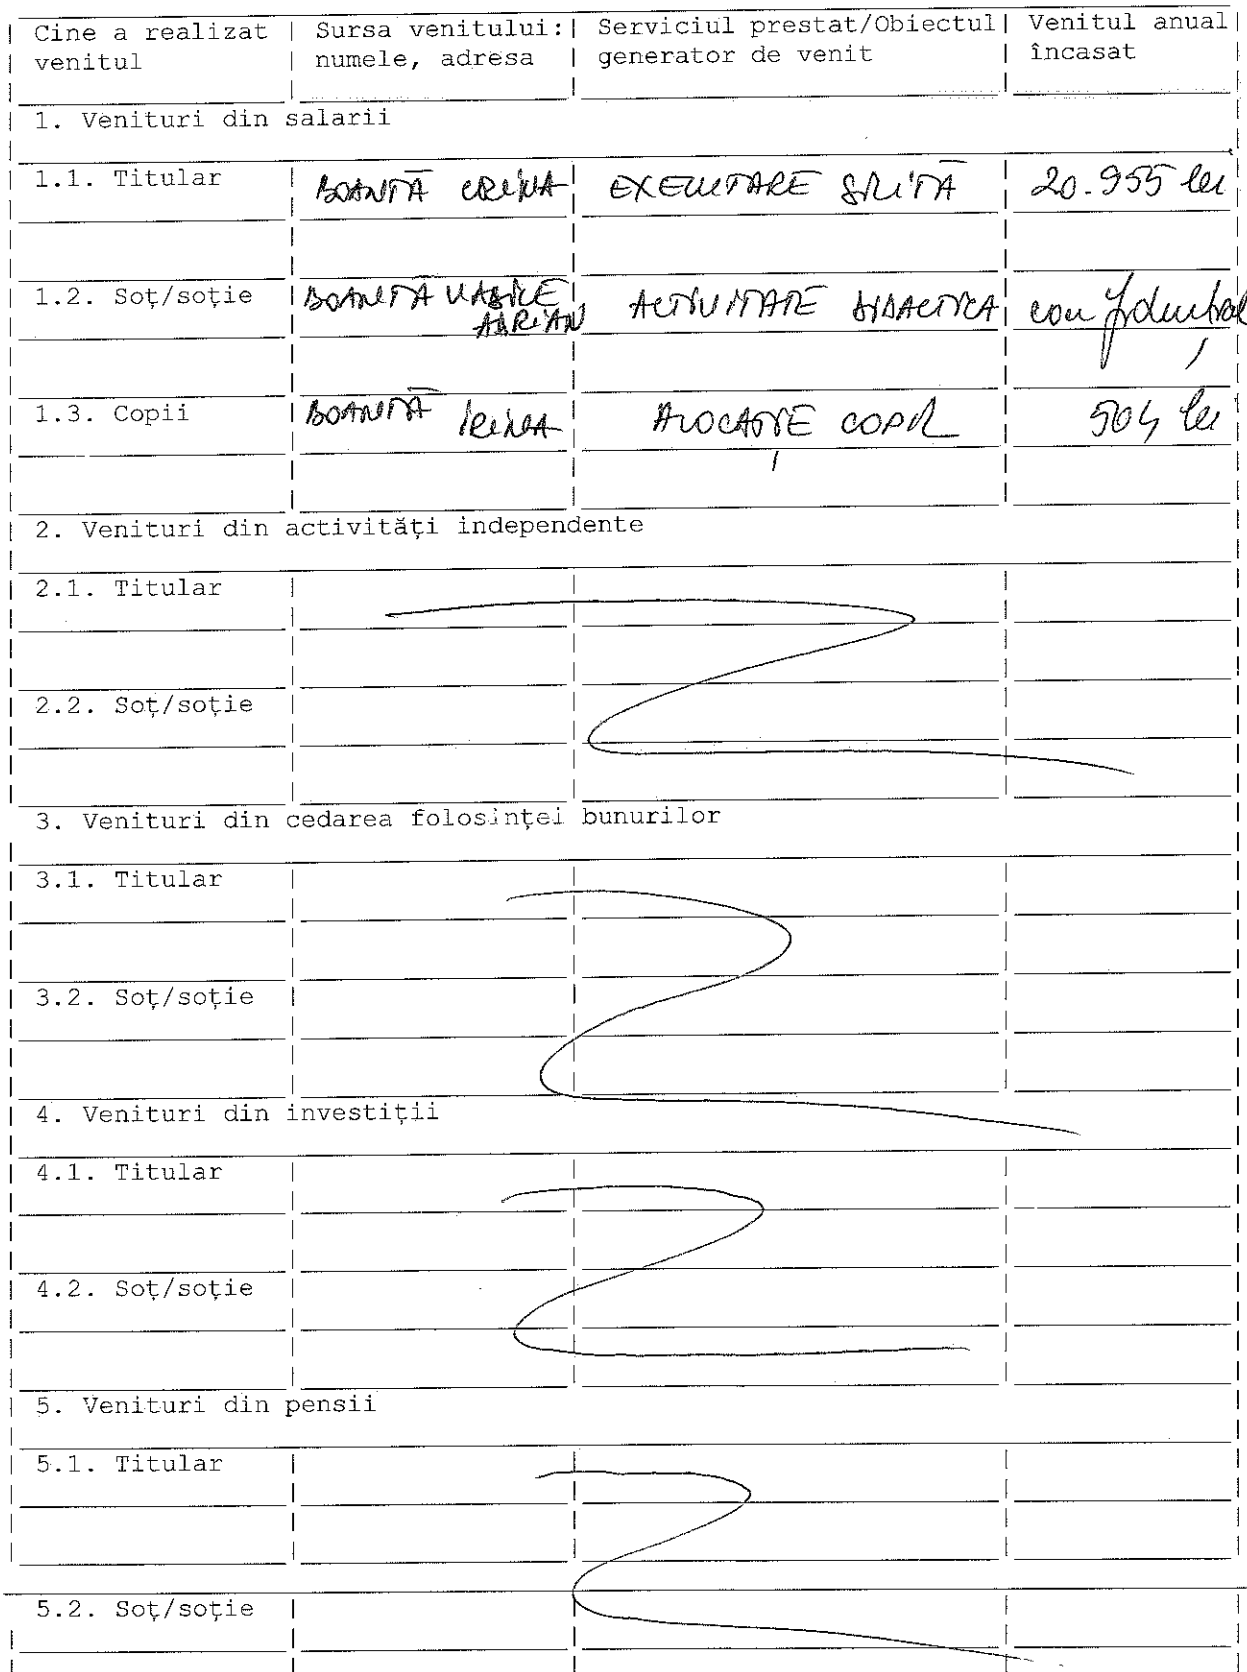 Cine a realizat | Sursa venitului: | Serviciul prestat/Obiectul | Venitul anual
venitul | numele, adresa | generator de venit | încasat
1. Venituri din salarii
1.1. Titular | BOANTĂ CRINA | EXECUTARE SILITĂ | 20.955 lei
1.2. Soț/soție | BOANTĂ VASILE | ACTIVITATE DIDACTICA | confidențial
ADRIAN
1.3. Copii | BOANTĂ IRINA | ALOCAȚIE COPIL | 504 lei
2. Venituri din activități independente
2.1. Titular
2.2. Soț/soție
3. Venituri din cedarea folosinței bunurilor
3.1. Titular
3.2. Soț/soție
4. Venituri din investiții
4.1. Titular
4.2. Soț/soție
5. Venituri din pensii
5.1. Titular
5.2. Soț/soție